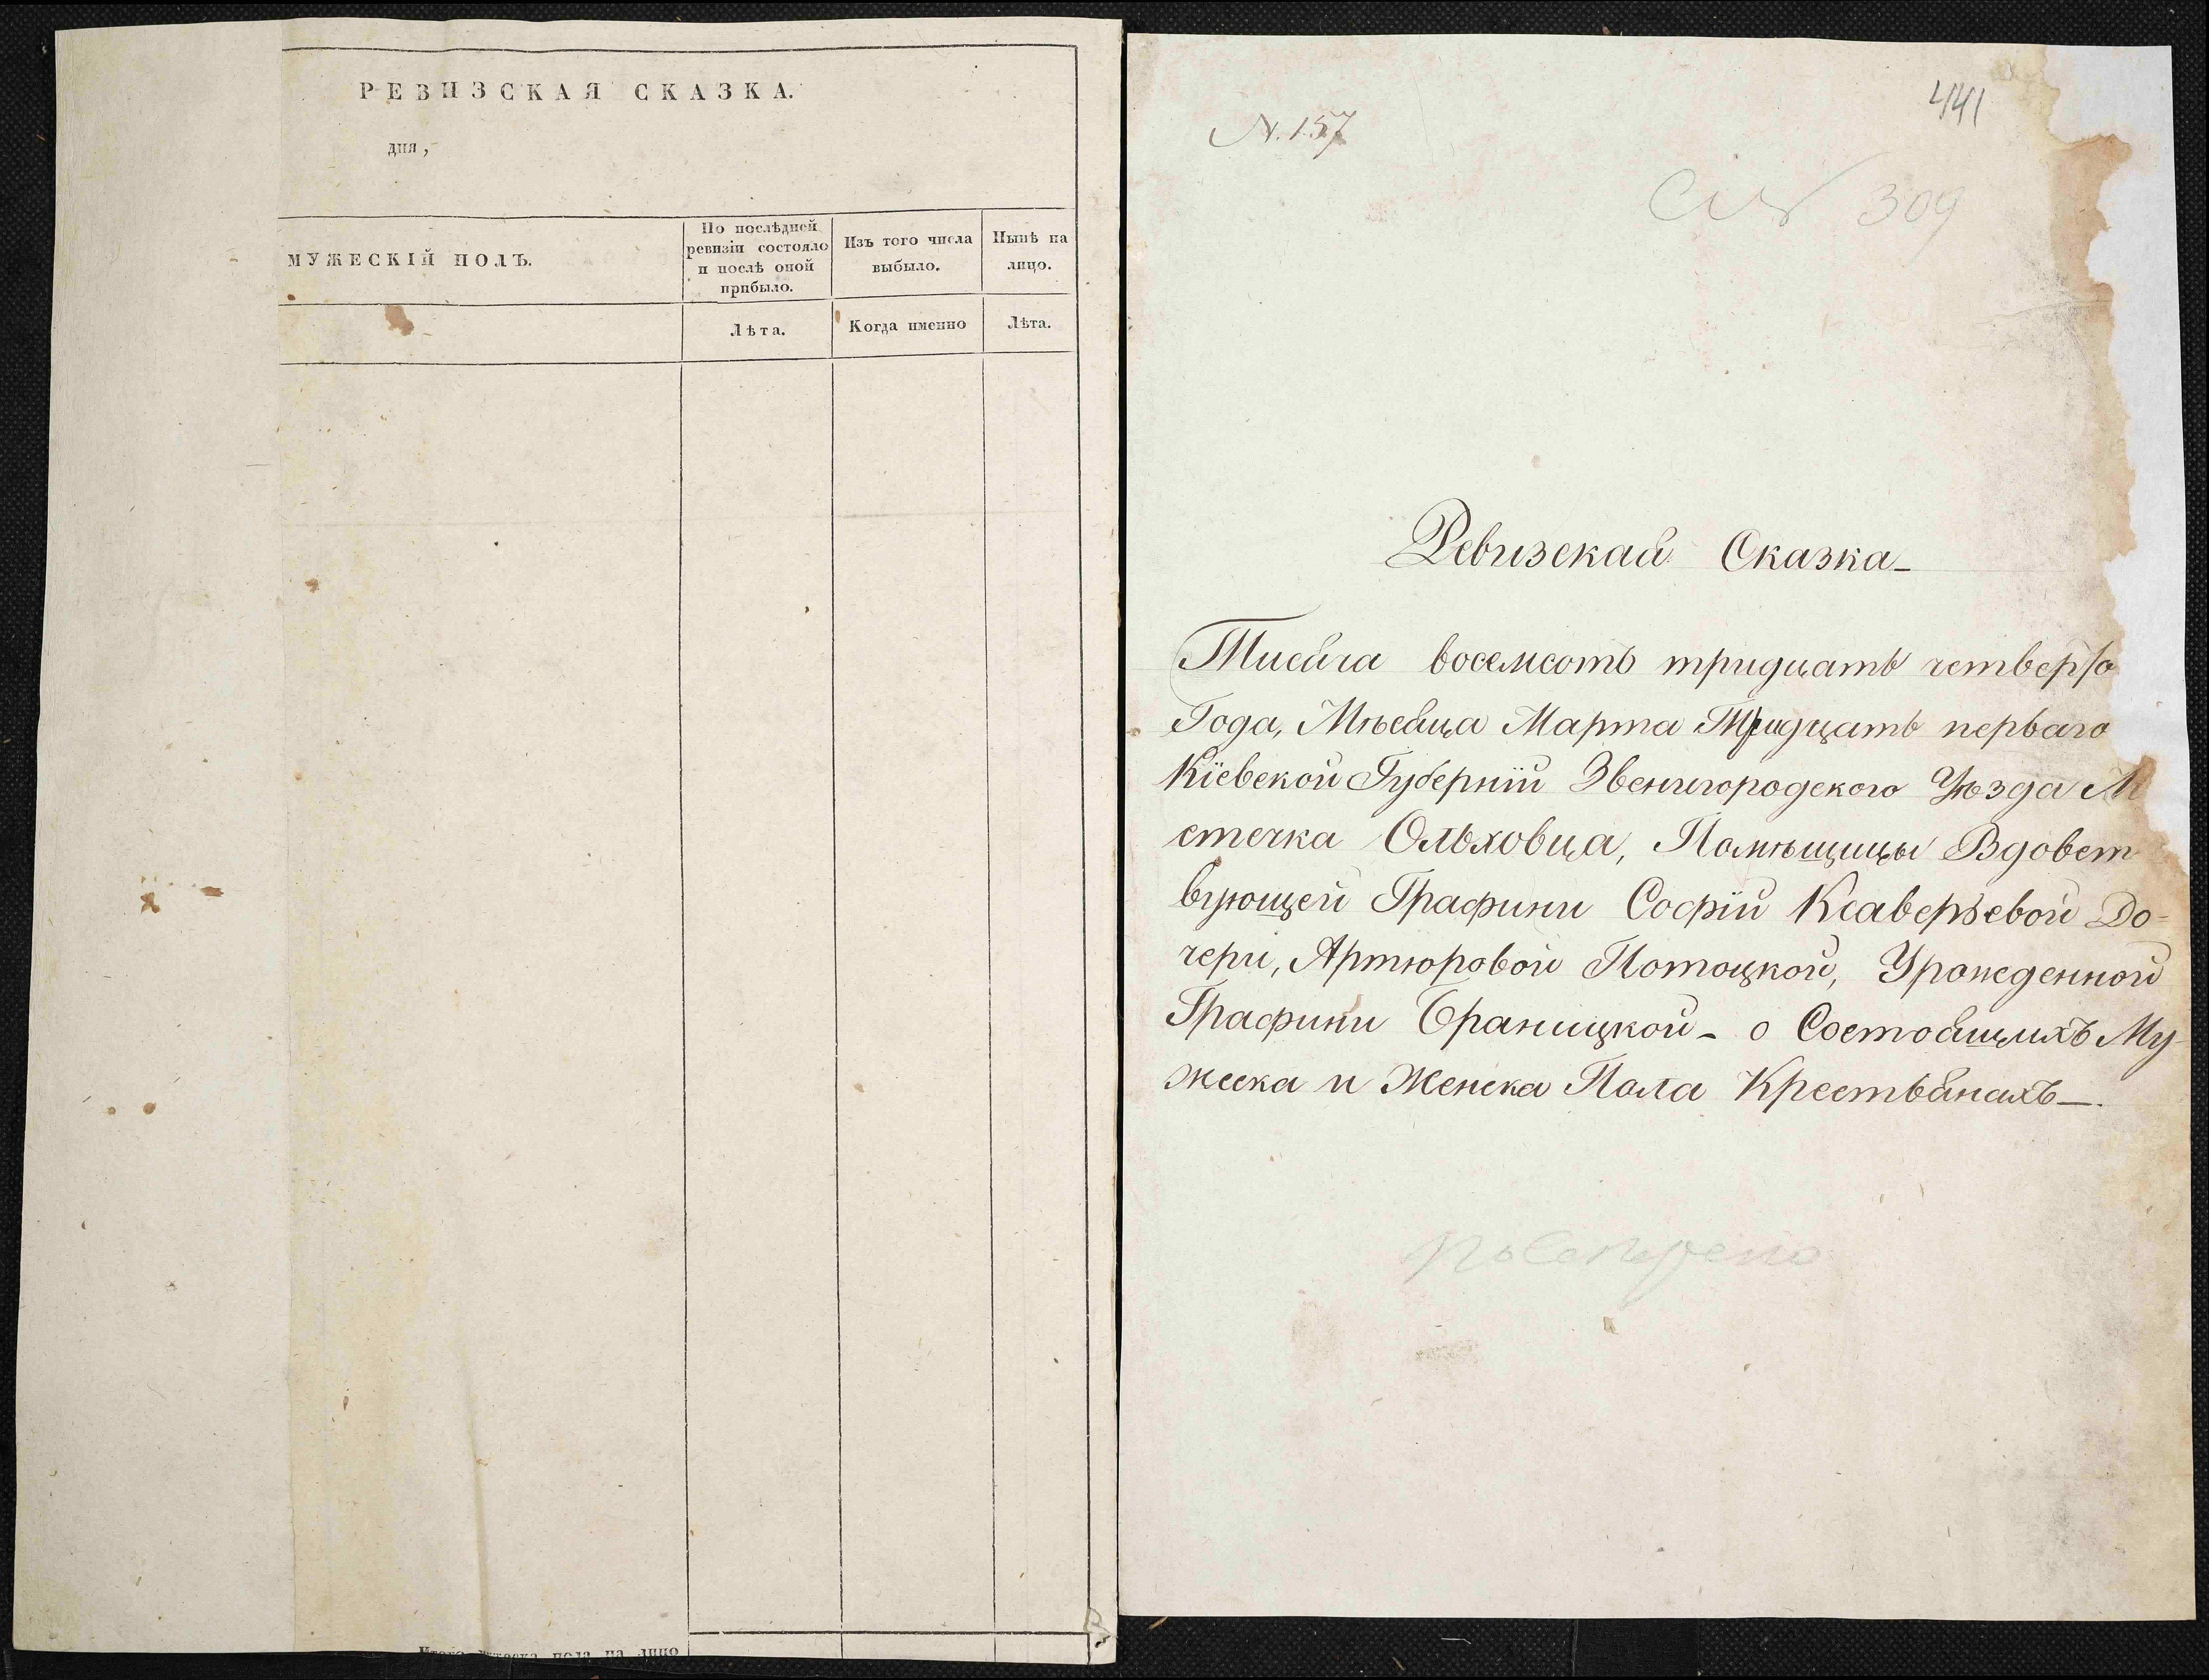 РЕВИЗСКАЯ СКАЗКА.
дня,
МУЖЕСКІЙ ПОЛЪ.
По послѣдней
ревизіи состояло
и послѣ оной
прибыло.
Изъ того числа
выбыло.
Нынѣ на
лицо.
Лѣта.
Когда именно
Лѣта.
Итого мужеска пола на лицо
441
N. 157
309
Ревизская Сказка
Тисяча восемсотъ тридцать четверто
Года, Мѣсяца Марта Тридцать перваго
Кіевской Губерніи Звенигородского Уѣзда М
стечка Ольховца, Помѣщицы Вдовст
вующей Графини Софіи Ксаверьевой До=
чери, Артюровой Потоцкой, Урожденной
Графини Браницкой - о Состоящихъ Му
жеска и Женска Пола Крестьянахъ —.